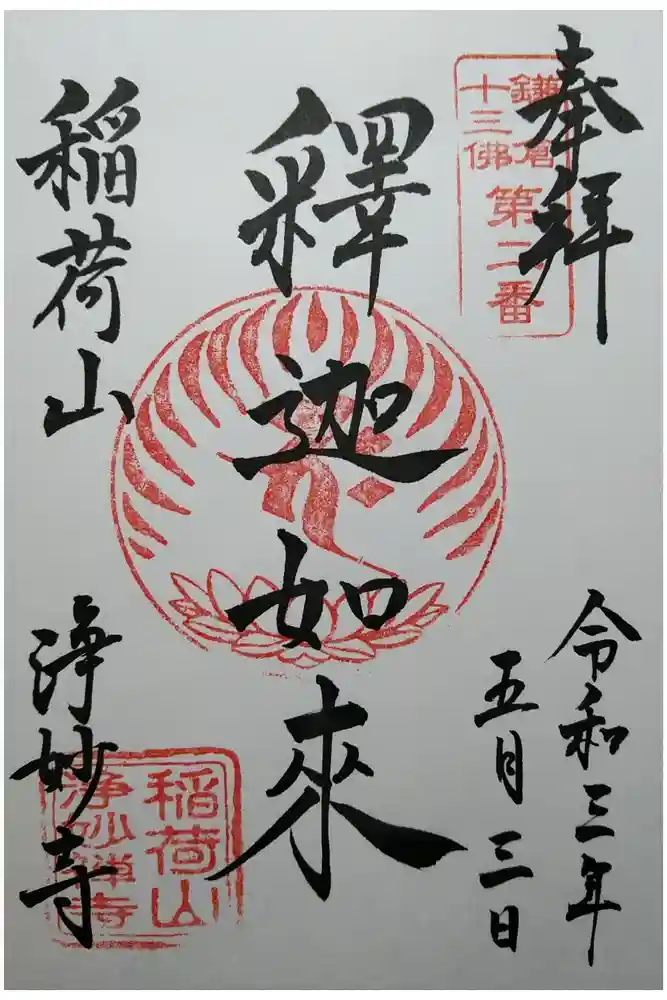 奉拝
鎌倉
十三佛
第二番
令和三年
五月三日
釋迦如來
稲荷山
浄妙寺
稲荷山
浄妙禅寺